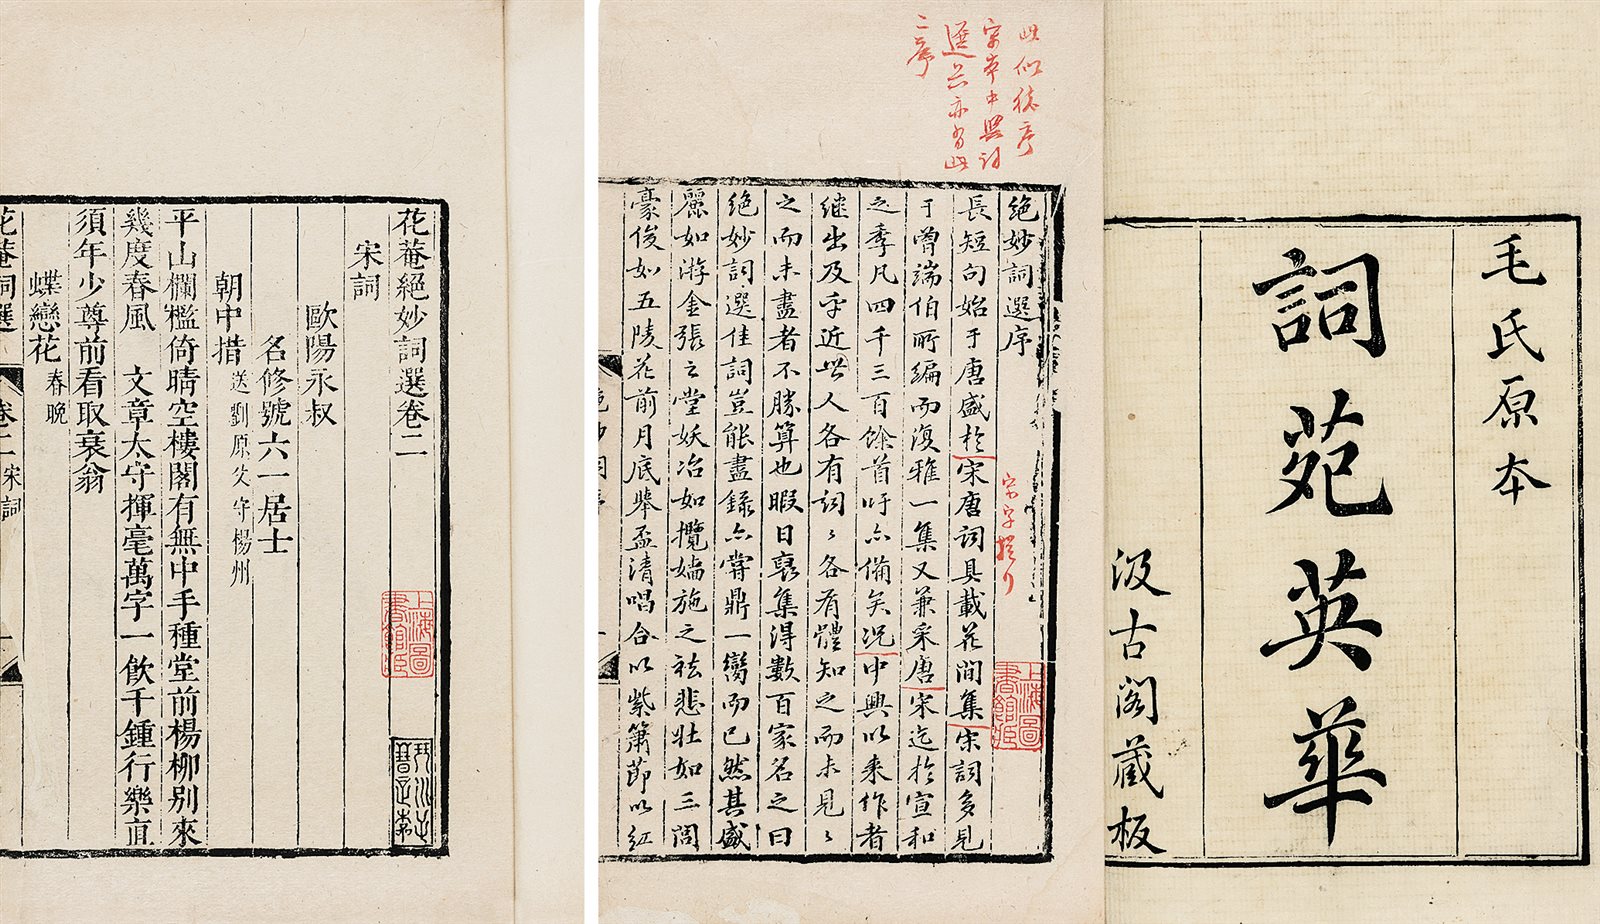 毛氏原本
詞苑英華
汲古閣藏板
此似總序
宋本中興詞
選前亦有此
二序
絕妙詞選序
長短句始于唐盛於宋唐詞具載花間集宋詞多見
于曾端伯所編而復雅一集又兼采唐宋迄於宣和
之季凡四千三百餘首吁亦備矣況中興以來作者
繼出及乎近世人各有詞詞各有體知之而未見見
之而未盡者不勝算也暇日裒集得數百家名之曰
絕妙詞選佳詞豈能盡錄亦嘗鼎一臠而已然其盛
麗如游金張之堂妖冶如攬嬙施之袪悲壯如三閭
豪俊如五陵花前月底舉盃清唱合以紫簫節以紅
宋字提行
上海圖書館藏
花菴絕妙詞選卷二
宋詞
歐陽永叔
名修號六一居士
朝中措 送劉原父守楊州
平山欄檻倚晴空樓閣有無中手種堂前楊柳別來
幾度春風 文章太守揮毫萬字一飲千鍾行樂直
須年少尊前看取衰翁
蝶戀花 春晚
花菴詞選 卷二 宋詞 一
上海圖書館藏